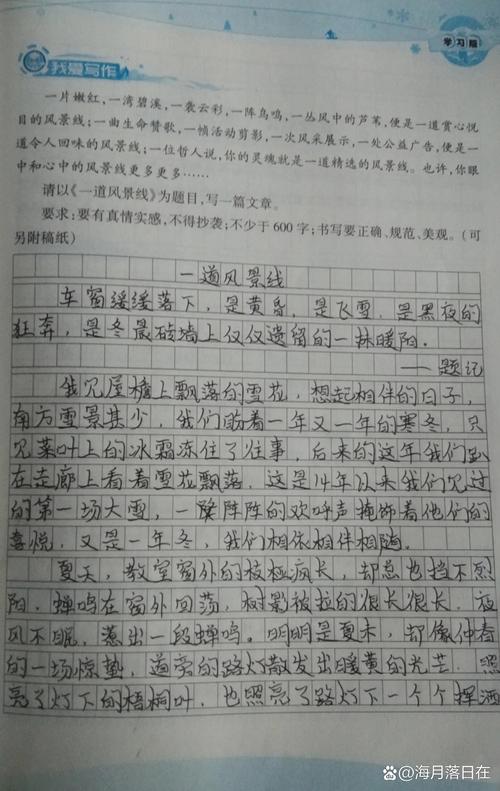 学习版
我爱写作
一片嫩红,一湾碧溪,一袭云彩,一阵鸟鸣,一丛风中的芦苇,便是一道赏心悦
目的风景线;一曲生命赞歌,一帧活动剪影,一次风采展示,一处公益广告,便是一
道令人回味的风景线;一位哲人说,你的灵魂就是一道精选的风景线。也许,你眼
中和心中的风景线更多更多……
请以《一道风景线》为题目,写一篇文章。
要求:要有真情实感,不得抄袭;不少于 600 字;书写要正确、规范、美观。(可
另附稿纸)
一道风景线
车窗缓缓落下,是黄昏,是飞雪,是黑夜的
狂奔,是冬晨砖墙上仅仅遗留的一抹暖阳。
——题记
我见屋檐上飘落的雪花,想起相伴的日子,
南方雪景甚少,我们盼着一年又一年的寒冬,只
见菜叶上的冰霜冻住了往事,后来的这年我们趴
在走廊上看着雪花飘落,这是14年以来我们见过
的第一场大雪,一阵阵的欢呼声掩饰着他们的
喜悦,又是一年冬,我们相依相伴相随。
夏天,教室窗外的枝桠疯长,却总也挡不烈
阳,蝉鸣在窗外回荡,树影被拉的很长很长,夜
风不眠,惹出一段蝉鸣。明明是夏末,却像仲春
的一场惊蛰,道旁的路灯散发出暖黄的光芒,照
亮了灯下的梧桐叶,也照亮了路灯下一个个挥洒
@海月落日在